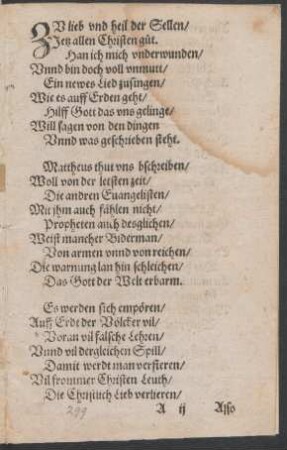 ZV lieb vnd heil der Sellen/
Jetz allen Christen gůt.
Han ich mich vnderwunden/
Vnnd bin doch voll vnmutt/
Ein newes Lied zusingen/
Wie es auff Erden geht/
Hilff Gott das vns gelinge/
Will sagen von den dingen
Vnnd was geschrieben steht.
Mattheus thut vns bschreiben/
Woll von der letsten zeit/
Die andren Euangelisten/
Mit jhm auch fählen nicht/
Propheten auch desglichen/
Weist mancher Biderman/
Von armen vnnd von reichen/
Die warnung lan hin schleichen/
Das Gott der Welt erbarm.
Es werden sich empören/
Auff Erdt der Völcker vil/
Voran vil falsche Lehren/
Vnnd vil dergleichen Spill/
Damit werdt man verfieren/
Vil frommer Christen Leuth/
Die Christlich Lieb verlieren/
299 A ij Also